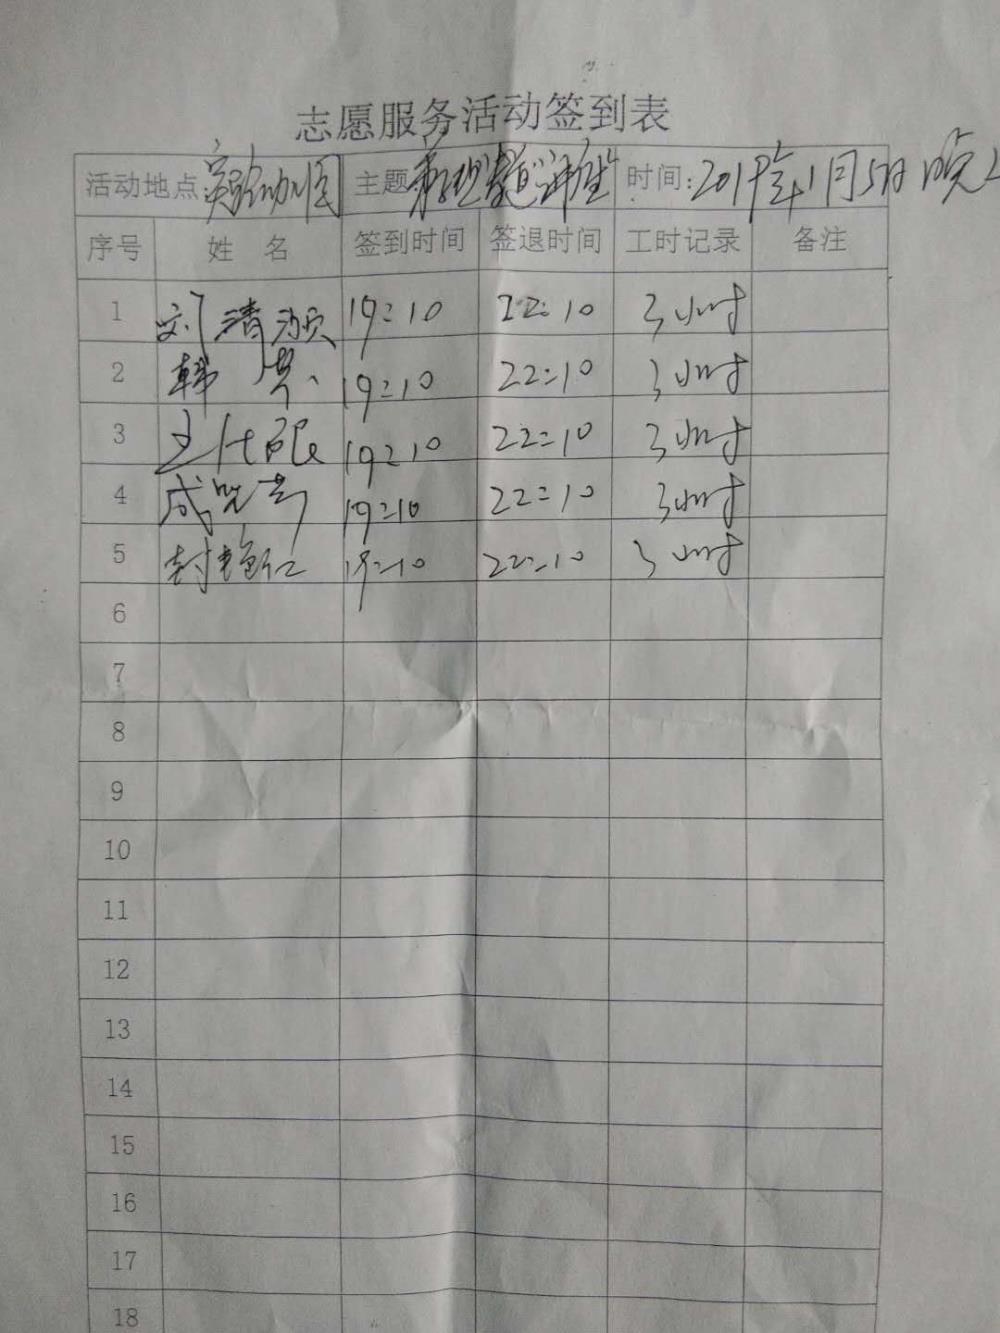 志愿服务活动签到表
活动地点:实验幼儿园 主题 讲座 时间:2019年1月5日晚上
序号 姓 名 签到时间 签退时间 工时记录 备注
1 刘清颖 19:10 22:10 3小时
2 韩 19:10 22:10 3小时
3 王 19:10 22:10 3小时
4 成 19:10 22:10 3小时
5 封艳红 19:10 22:10 3小时
6
7
8
9
10
11
12
13
14
15
16
17
18